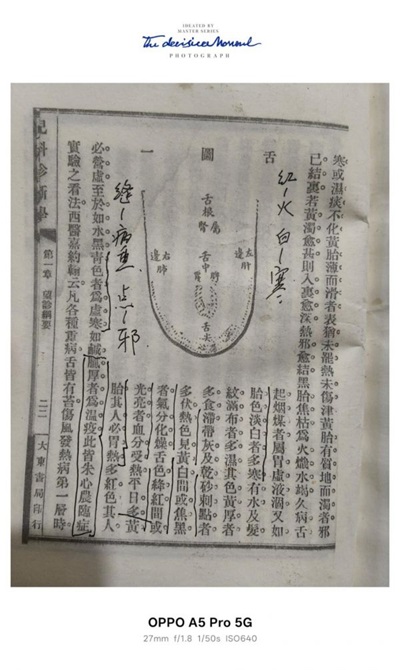 MASTER SERIES
The decisive Moment
PHOTOGRAPH
寒或濕痰不化黃胎薄而滑者表猶未罷熱未傷津黃胎有質地而濁者邪
已結裏若黃濁愈甚則入裏愈深熱邪愈結黑胎焦枯為火熾水竭久病舌
舌
圖
一
紅 火 白 寒
舌根屬腎
舌中
舌尖
左邊肝
右邊肺
起烟煤者屬胃虛液涸又如
胎色淡白者多寒有水及髮
紋滿布者多濕其色黃厚者
多食滯帶灰及乾砂刺點者
多伏熱色見黃白間或焦黑
者氣分化燥舌色絳紅間或
光亮者血分受熱平日多黃
胎其人必胃熱多紅色其人
病 邪
必營虛至於如水黑青色者為虛寒如鹹龍厚者為溫疫此皆朱心農臨症
實驗之看法西醫嘉約翰云凡各種重病舌皆有苔傷風發熱病第一層時
兒科診斷學
第一章 望診綱要
二二
大東書局印行
OPPO A5 Pro 5G
27mm f/1.8 1/50s ISO640